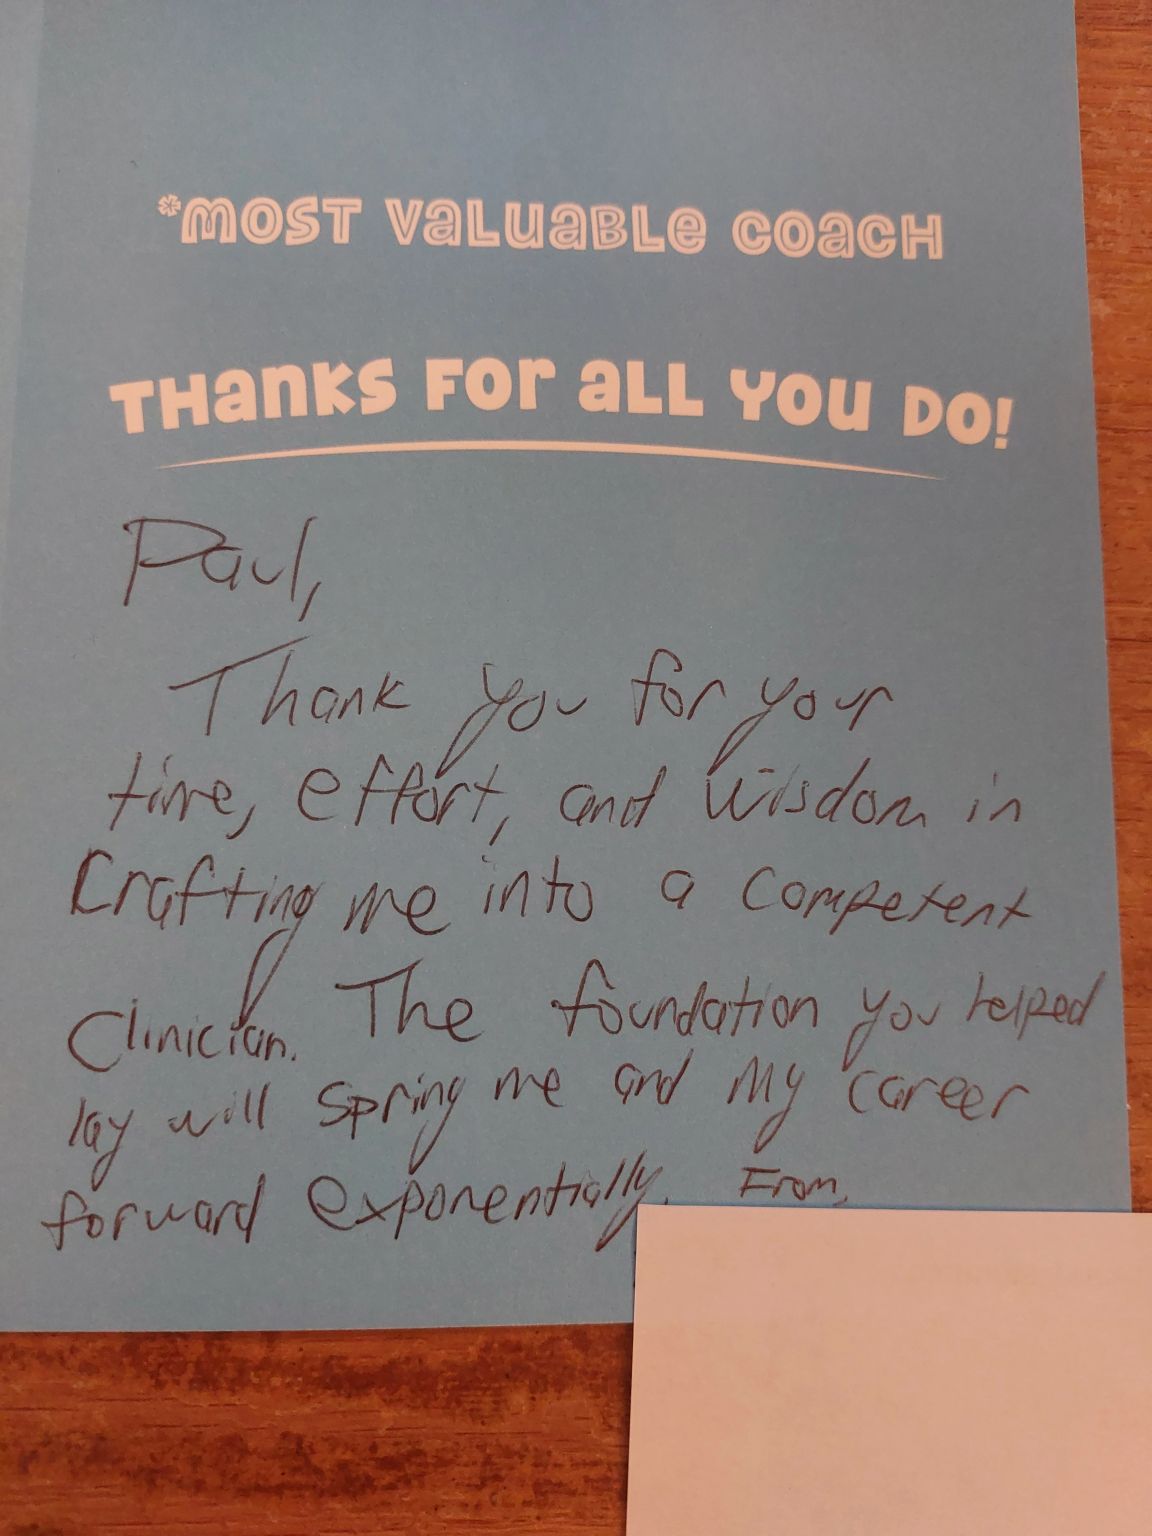 *MOST VALUABLE COACH
THANKS FOR ALL YOU DO!
Paul,
Thank you for your
time, effort, and wisdom in
Crafting me into a competent
Clinician. The foundation you helped
lay will spring me and my career
forward exponentially. From,